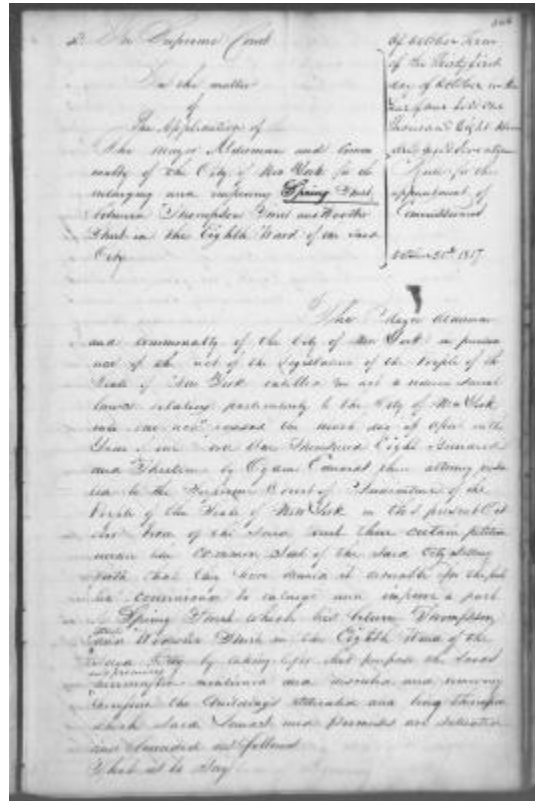 In Supreme Court
In the matter
of
The Application of
The Mayor Aldermen and Common
alty of the City of New York for the
enlarging and improving Spring Street,
between Thompson Street and Wooster
Street in the Eighth Ward of the said
City
Of October Term
of the Thirty first
day of October in the
year of our Lord One
Thousand Eight Hun
dred and Seventeen
Rule for the
appointment of
Commissioners
October 31st 1817
The Mayor Aldermen
and Commonalty of the City of New York in pursu
ance of the act of the Legislature of the People of the
State of New York entitled an act to reduce several
laws relating particularly to the City of New York
into one act passed the ninth day of April in the
Year of our Lord One Thousand Eight Hundred
and Thirteen by Ogden Edwards their attorney
to the Supreme Court of Judicature of the
People of the State of New York in this present Oc
tober Term of the said Court their certain petition
under the Common Seal of the said City setting
forth that they have deemed it desirable for the pub
lic convenience to enlarge and improve a part
of Spring Street which lies between Thompson
Street
and Wooster Street in the Eighth Ward of the
said City by taking for that purpose the lands
and premises
hereinafter mentioned and described and removing
the Buildings situated and being thereupon
which said Lands and Premises are situated
and bounded as follows
That is to Say